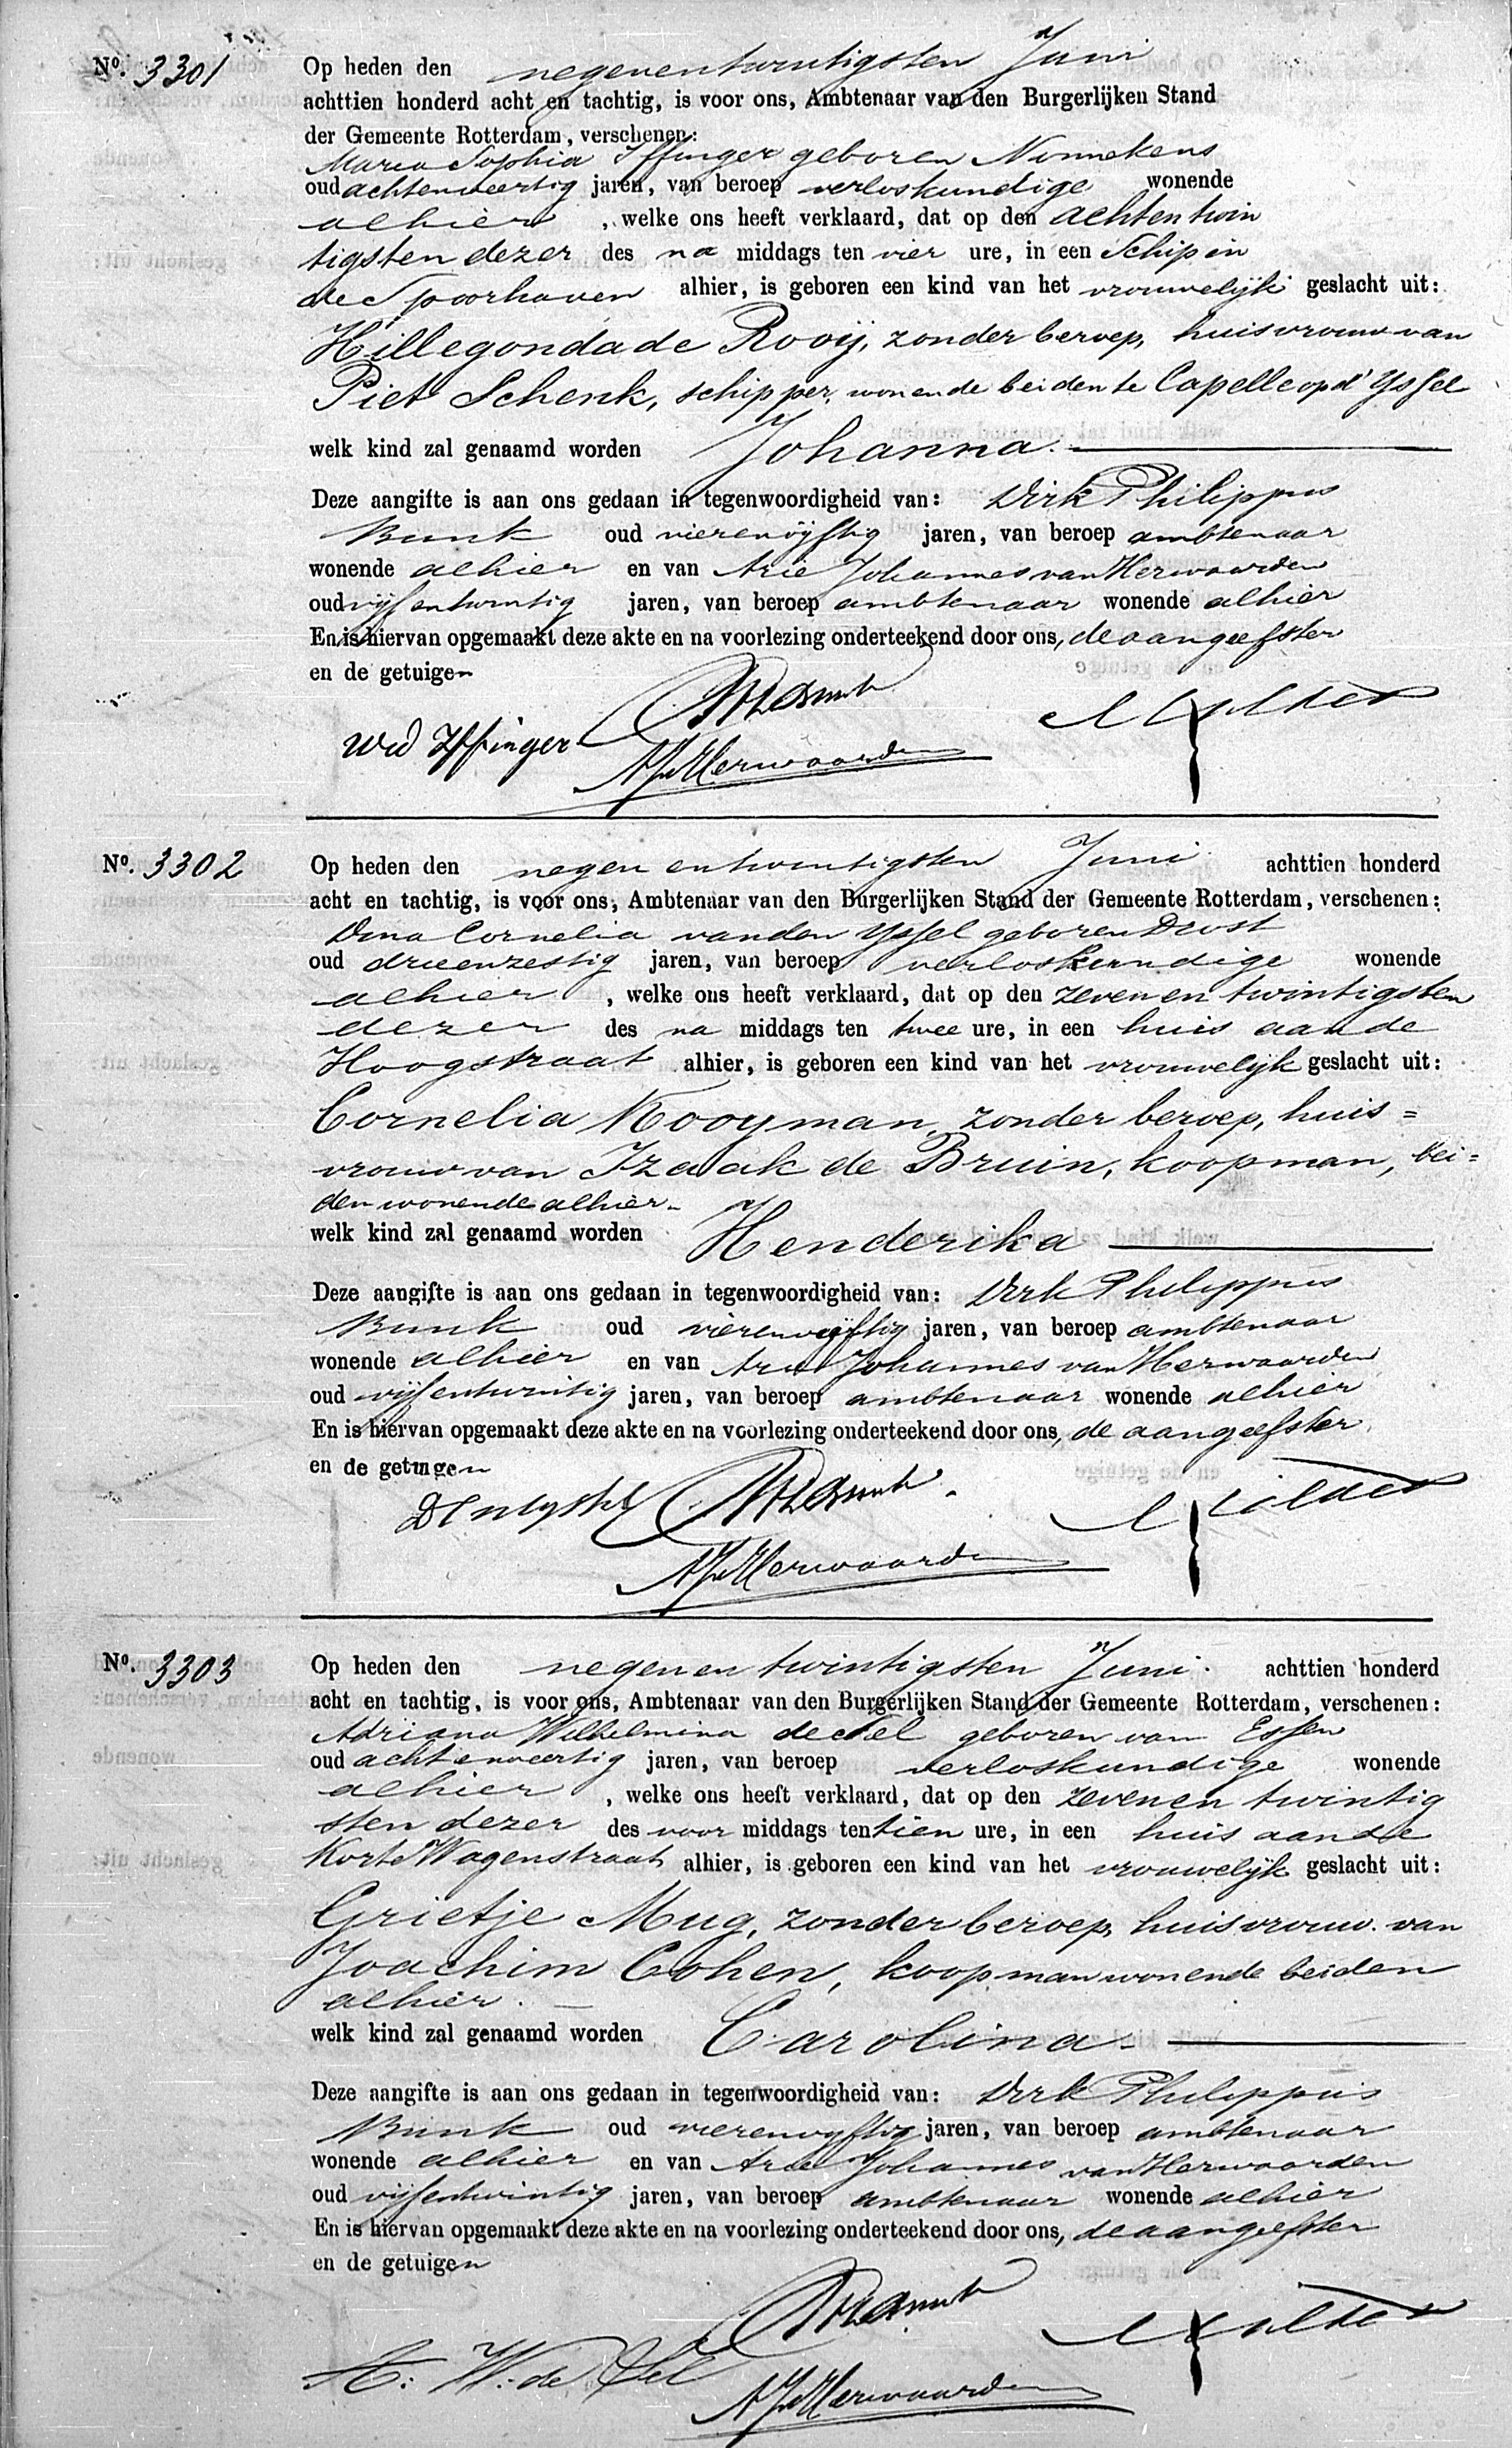 No. 3301
Op heden den negenentwintigsten Juni
achttien honderd acht en tachtig, is voor ons, Ambtenaar van den Burgerlijken Stand
der Gemeente Rotterdam, verschenen:
Maria Sophia Iffinger geboren Nonnekens
oud achtenveertig jaren, van beroep verloskundige wonende
alhier, welke ons heeft verklaard, dat op den achtentwin
tigsten dezer des na middags ten vier ure, in een Schip in
de Spoorhaven alhier, is geboren een kind van het vrouwelijk geslacht uit:
Hillegonda de Rooij, zonder beroep, huisvrouw van
Piet Schenk, schipper, wonende beiden te Capelle op d' Yssel
welk kind zal genaamd worden Johanna.
Deze aangifte is aan ons gedaan in tegenwoordigheid van: Dirk Philippus
Bunk oud vierenvijftig jaren, van beroep ambtenaar
wonende alhier en van Arie Johannes van Herwaarden
oud vijfentwintig jaren, van beroep ambtenaar wonende alhier
En is hiervan opgemaakt deze akte en na voorlezing onderteekend door ons, de aangeefster
en de getuigen
Wed Iffinger
AJvHerwaarden
No. 3302
Op heden den negenentwintigsten Juni achttien honderd
acht en tachtig, is voor ons, Ambtenaar van den Burgerlijken Stand der Gemeente Rotterdam, verschenen:
Dina Cornelia van den Yssel geboren Drost
oud drieenzestig jaren, van beroep verloskundige wonende
alhier, welke ons heeft verklaard, dat op den zeven en twintigsten
dezer des na middags ten twee ure, in een huis aan de
Hoogstraat alhier, is geboren een kind van het vrouwelijk geslacht uit:
Cornelia Kooyman, zonder beroep, huis=
vrouw van Izaak de Bruin, koopman, bei=
den wonende alhier.
welk kind zal genaamd worden Henderika
Deze aangifte is aan ons gedaan in tegenwoordigheid van: Dirk Philippus
Bunk oud vierenvijftig jaren, van beroep ambtenaar
wonende alhier en van Arie Johannes van Herwaarden
oud vijfentwintig jaren, van beroep ambtenaar wonende alhier
En is hiervan opgemaakt deze akte en na voorlezing onderteekend door ons, de aangeefster
en de getuigen
AJvHerwaarden
No. 3303
Op heden den negen en twintigsten Juni. achttien honderd
acht en tachtig, is voor ons, Ambtenaar van den Burgerlijken Stand der Gemeente Rotterdam, verschenen:
Adriana Wilhelmina de Nel geboren van Essen
oud achtenveertig jaren, van beroep verloskundige wonende
alhier, welke ons heeft verklaard, dat op den zeven en twintig
sten dezer des voor middags ten tien ure, in een huis aan de
Korte Wagenstraat alhier, is geboren een kind van het vrouwelijk geslacht uit:
Grietje Mug, zonder beroep, huisvrouw van
Joachim Cohen, koopman wonende beiden
alhier.
welk kind zal genaamd worden Carolina.
Deze aangifte is aan ons gedaan in tegenwoordigheid van: Dirk Philippus
Bunk oud vierenvijftig jaren, van beroep ambtenaar
wonende alhier en van Arie Johannes van Herwaarden
oud vijfentwintig jaren, van beroep ambtenaar wonende alhier
En is hiervan opgemaakt deze akte en na voorlezing onderteekend door ons, de aangeefster
en de getuigen
A: W: de Nel
AJvHerwaarden